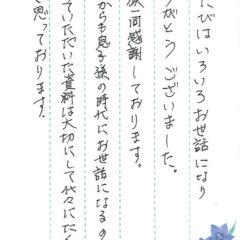 たびはいろいろお世話になり
がとうございました。
族一同感謝しております。
からも息子孫の時代にお世話になるの
ていただいた資料は大切にして代々にた
思っております。